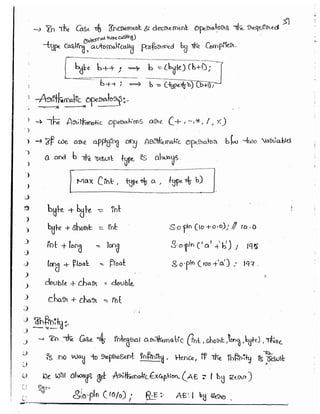 31
→ In the Case of Increment & decrement Operators the Required
(internal type casting)
type casting, automatically performed by the Compiler.
byte b++ ; → b = (byte) (b+1);
b++ ; → b = (type of b) (b+1);
Arithmetic operators:-
→ The Arithmetic operations are (+, -, *, /, %)
→ If we are applying any Arithmetic operator b/w two variables
a and b the result type is always.
Max (int, type of a, type of b)
byte + byte = int
byte + short = int
S.o.pln (10+0.0); // 10.0
int + long = long
S.o.pln ('a'+'b'); 195
long + float = float
S.o.pln (100+'a'); 197.
double + char = double
char + char = int
Infinity:-
→ In the Case of integral arithmetic (int, short, long, byte), There
is no way to represent infinity. Hence, if the infinity is the result
we will always get Arithmetic Exception. (AE : / by zero)
Eg:-
S.o.pln (10/0) ; R.E :- AE: / by zero.